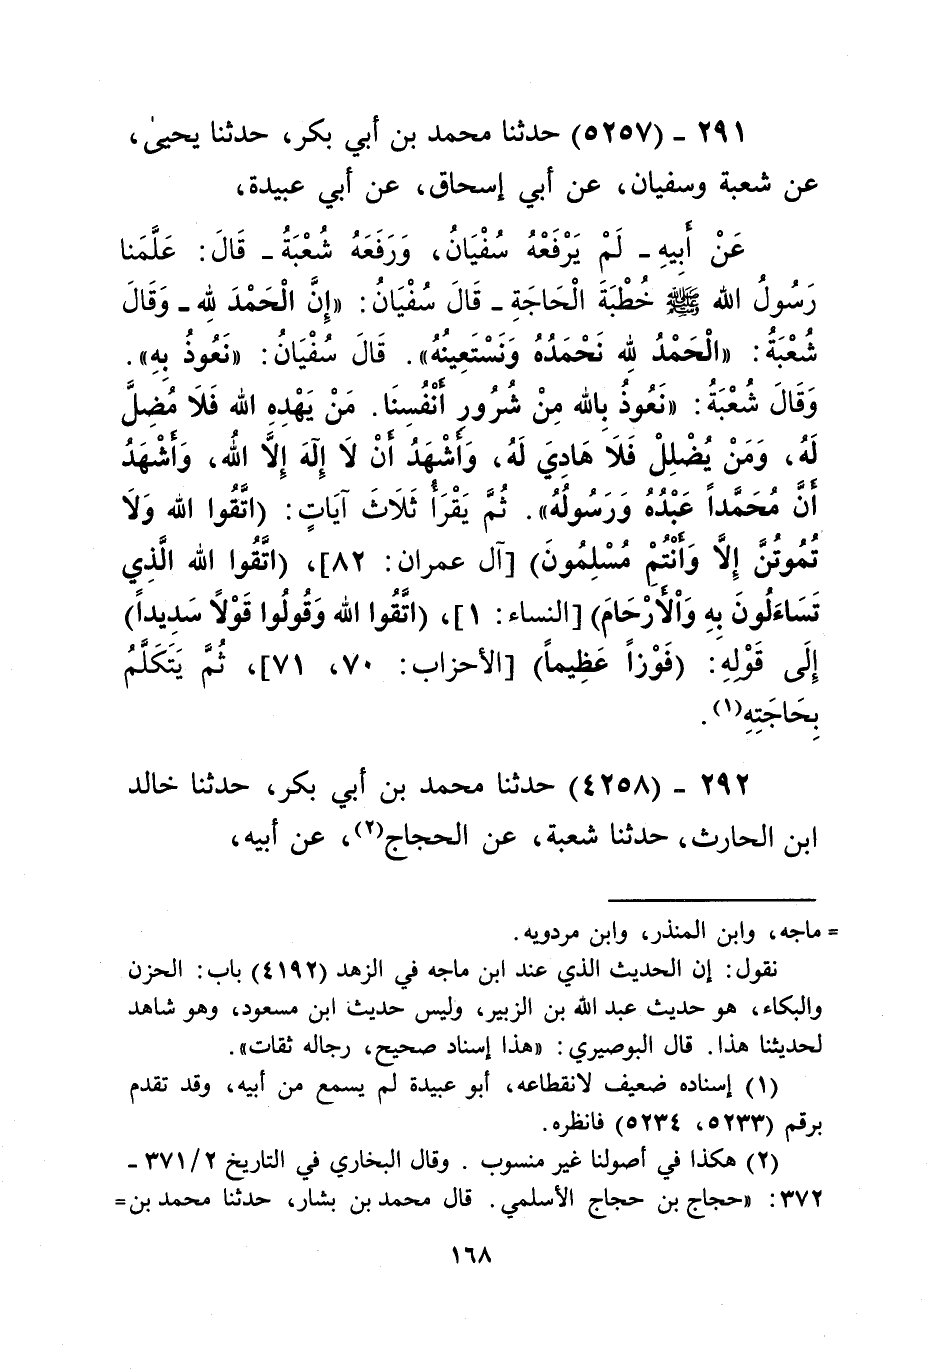 ٢٩١ - (٥٢٥٧) حدثنا محمد بن أبي بكر، حدثنا يحيىٰ،
عن شعبة وسفيان، عن أبي إسحاق، عن أبي عبيدة،
عَنْ أَبِيهِ - لَمْ يَرْفَعْهُ سُفْيَانُ، وَرَفَعَهُ شُعْبَةُ - قَالَ: عَلَّمَنا
رَسُولُ الله ﷺ خُطْبَةَ الْحَاجَةِ - قَالَ سُفْيَانُ: «إِنَّ الْحَمْدَ لله - وَقَالَ
شُعْبَةُ: «الْحَمْدُ لله نَحْمَدُهُ وَنَسْتَعِينُهُ». قَالَ سُفْيَانُ: «نَعُوذُ بِهِ».
وَقَالَ شُعْبَةُ: «نَعُوذُ بِالله مِنْ شُرُورِ أَنْفُسِنَا. مَنْ يَهْدِهِ الله فَلَا مُضِلَّ
لَهُ، وَمَنْ يُضْلِلْ فَلَا هَادِيَ لَهُ، وَأَشْهَدُ أَنْ لَا إِلَهَ إِلَّا اللهُ، وَأَشْهَدُ
أَنَّ مُحَمَّداً عَبْدُهُ وَرَسُولُهُ». ثُمَّ يَقْرَأُ ثَلَاثَ آيَاتٍ: (اتَّقُوا الله وَلَا
تَمُوتُنَّ إِلَّا وَأَنْتُمْ مُسْلِمُونَ) [آل عمران: ٨٢]، (اتَّقُوا الله الَّذِي
تَسَاءَلُونَ بِهِ وَالْأَرْحَامَ) [النساء: ١]، (اتَّقُوا الله وَقُولُوا قَوْلاً سَدِيداً)
إِلَى قَوْلِهِ: (فَوْزاً عَظِيماً) [الأحزاب: ٧٠، ٧١]، ثُمَّ يَتَكَلَّمُ
بِحَاجَتِهِ(١).
٢٩٢ - (٤٢٥٨) حدثنا محمد بن أبي بكر، حدثنا خالد
ابن الحارث، حدثنا شعبة، عن الحجاج(٢)، عن أبيه،
= ماجه، وابن المنذر، وابن مردويه.
نقول: إن الحديث الذي عند ابن ماجه في الزهد (٤١٩٢) باب: الحزن
والبكاء، هو حديث عبد الله بن الزبير، وليس حديث ابن مسعود، وهو شاهد
لحديثنا هذا. قال البوصيري: «هذا إسناد صحيح، رجاله ثقات».
(١) إسناده ضعيف لانقطاعه، أبو عبيدة لم يسمع من أبيه، وقد تقدم
برقم (٥٢٣٣، ٥٢٣٤) فانظره.
(٢) هكذا في أصولنا غير منسوب. وقال البخاري في التاريخ ٣٧١/٢ -
٣٧٢: «حجاج بن حجاج الأسلمي. قال محمد بن بشار، حدثنا محمد بن =
١٦٨